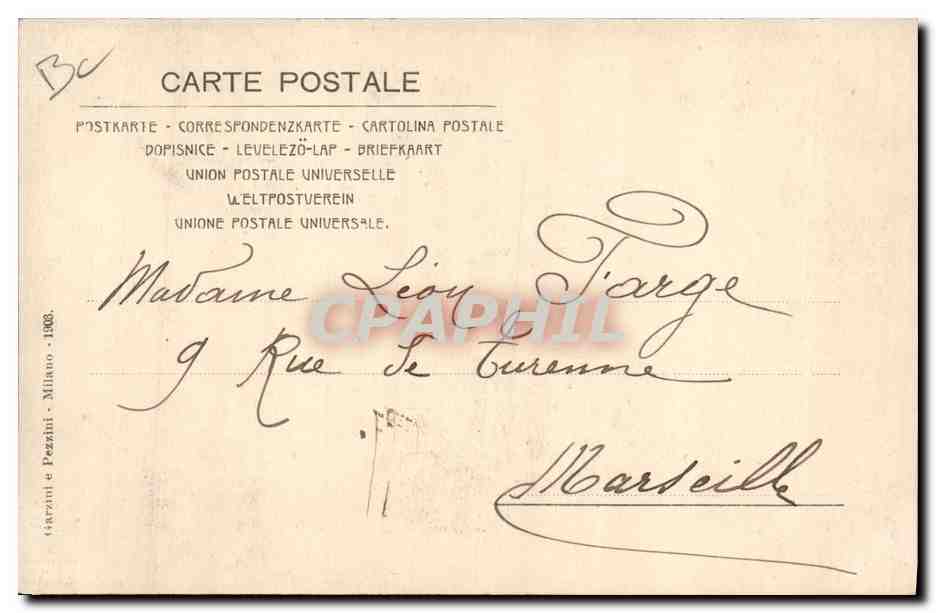 BC
CARTE POSTALE
POSTKARTE - CORRESPONDENZKARTE - CARTOLINA POSTALE
DOPISNICE - LEVELEZÖ-LAP - BRIEFKAART
UNION POSTALE UNIVERSELLE
WELTPOSTVEREIN
UNIONE POSTALE UNIVERSALE.
Madame Léon Farge
CPAPHIL
9 Rue de Turenne
Marseille
Garzini e Pezzini - Milano - 1903.